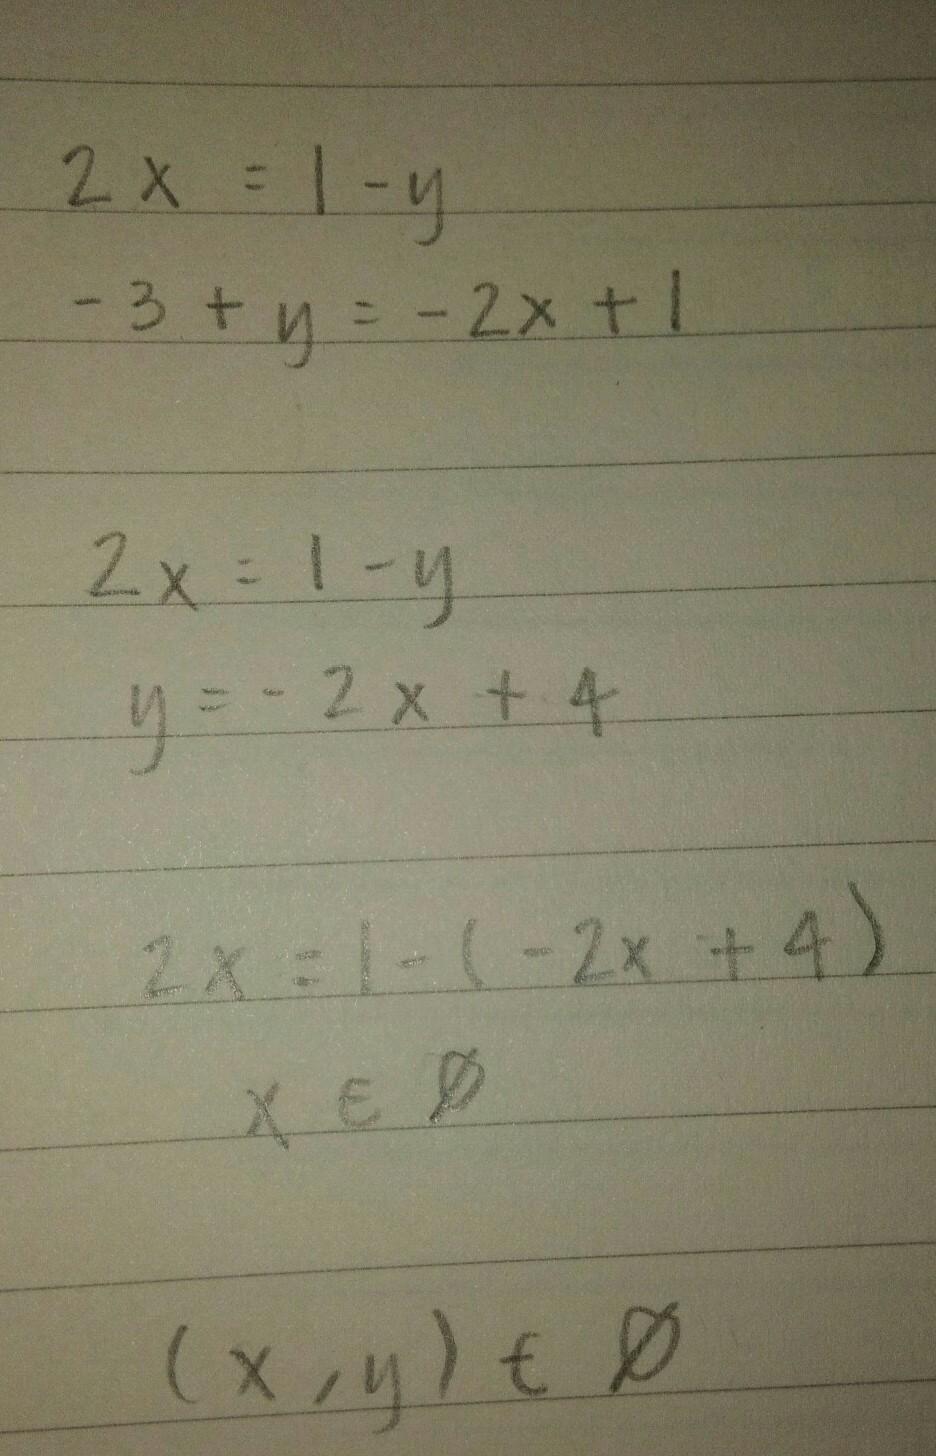 2x = 1 - y
-3 + y = -2x + 1
2x = 1 - y
y = -2x + 4
2x = 1 - (-2x + 4)
x ∈ ∅
(x, y) ∈ ∅